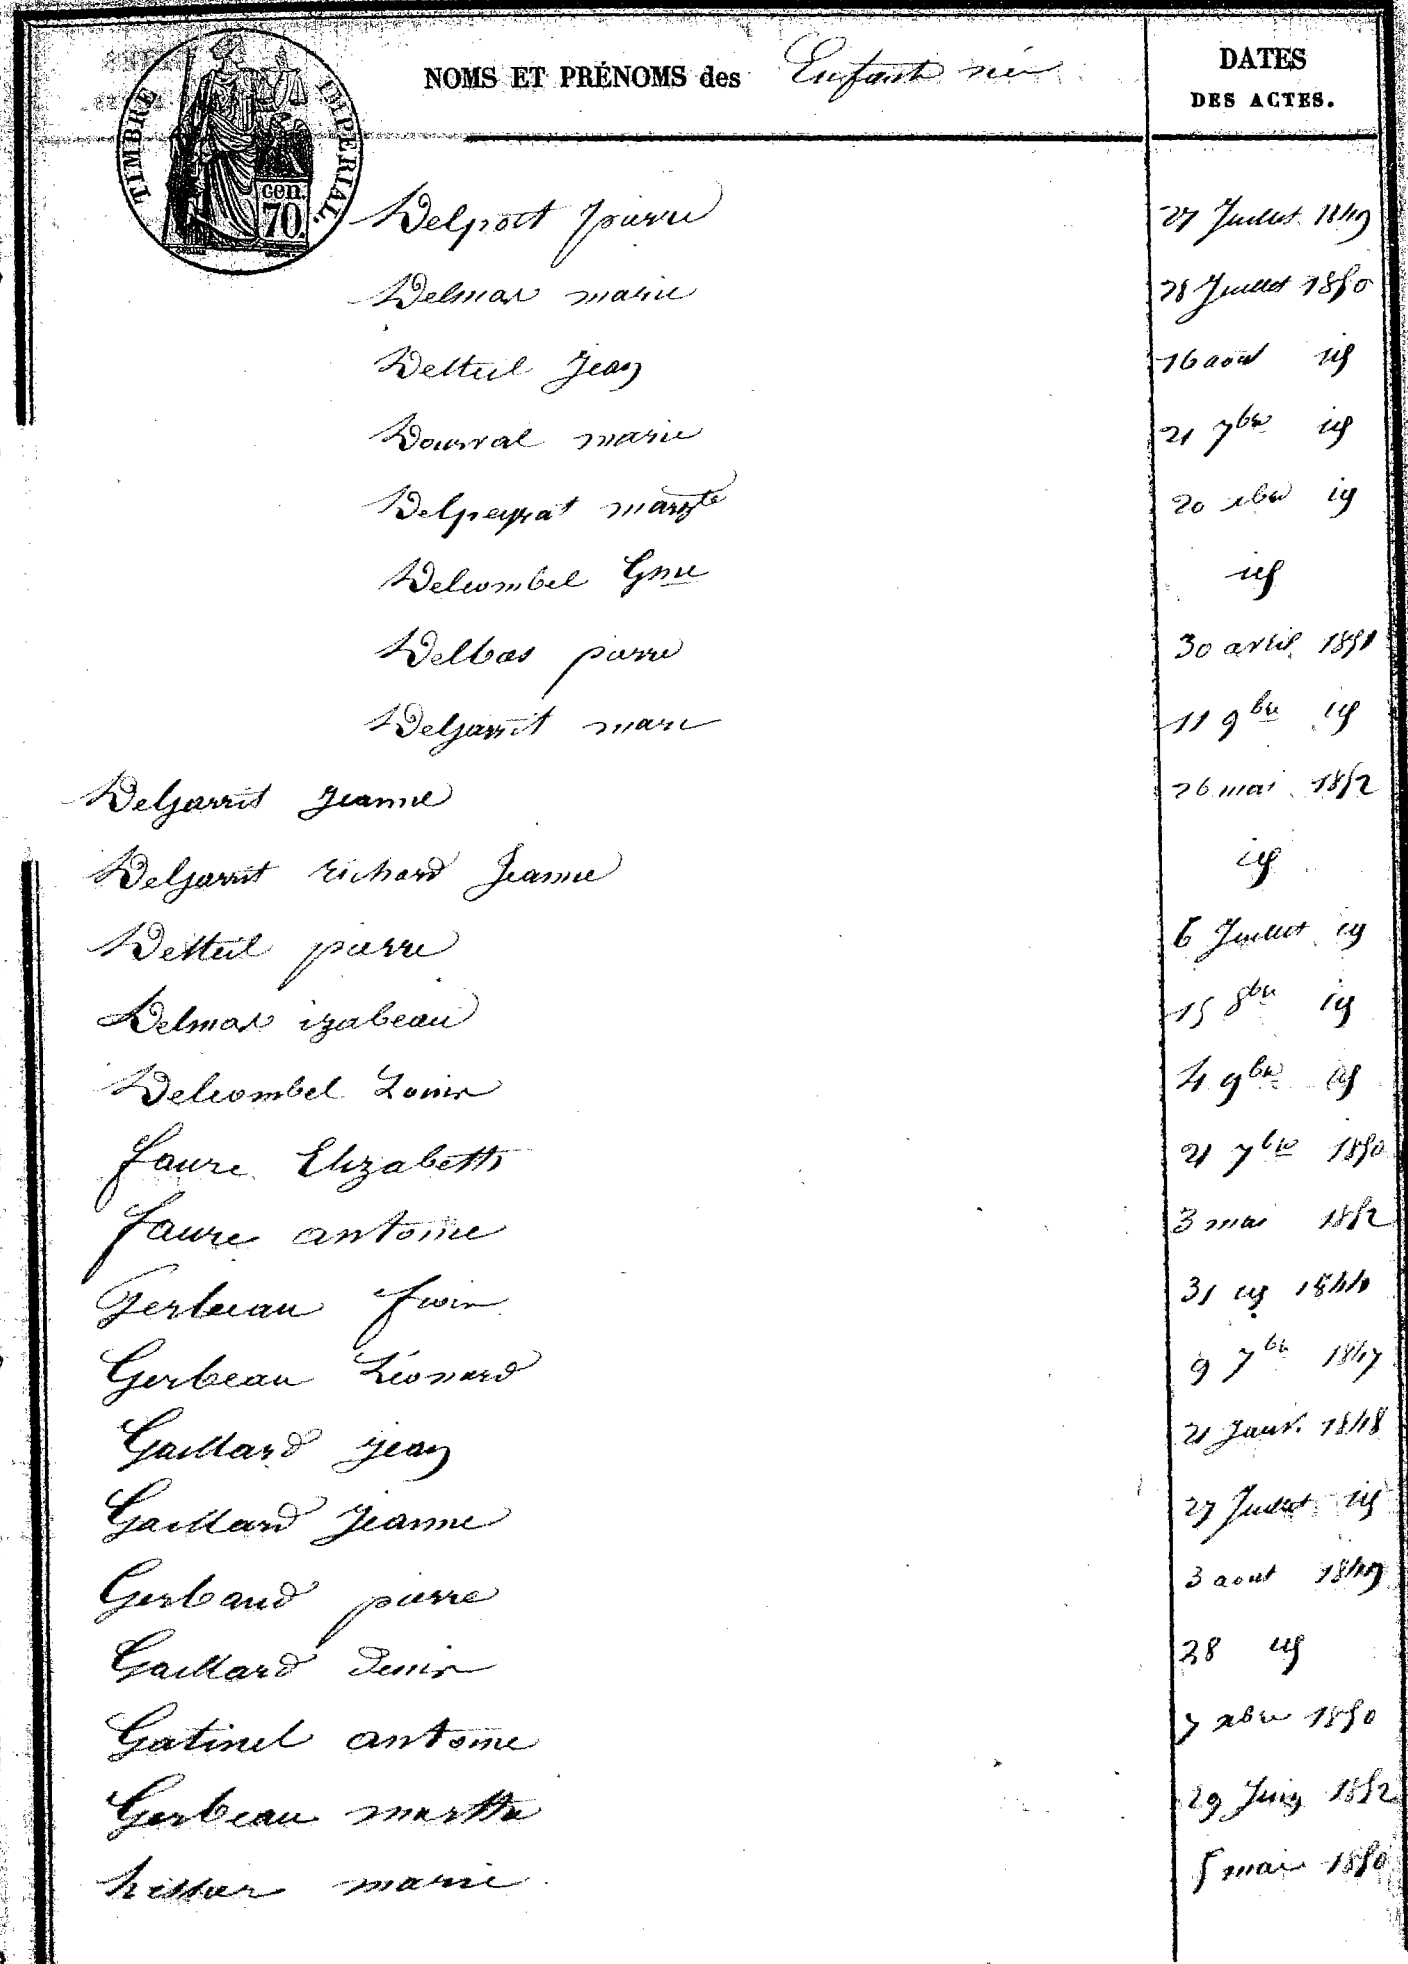 TIMBRE IMPÉRIAL.
cen.
70.
NOMS ET PRÉNOMS des Enfants nés
DATES
DES ACTES.
Delpoit pierre 27 Juillet 1849
Delmas marie 28 Juillet 1850
Delteil Jean 16 aout id
Dourval marie 21 7bre id
Delpeyrat margte 20 xbre id
Delcombel Gme id
Delbos pierre 30 avril 1851
Deljarrit marie 11 9bre id
Deljarrit Jeanne 26 mai 1852
Deljarrit richard Jeanne id
Delteil pierre 6 Juillet id
Delmas izabeau 15 8bre id
Delcombel Louis 4 9bre id
faure Elizabeth 21 7bre 1850
faure antoine 3 mai 1852
Gerbeau 31 id 1844
Gerbeau Léonard 9 7bre 1847
Gaillard Jean 21 Janv. 1848
Gaillard Jeanne 27 Juillet id
Gerbaud pierre 3 aout 1849
Gaillard denis 28 id
Gatinel antoine 7 xbre 1850
Gerbeau martha 29 Juin 1852
marie 5 mai 1850